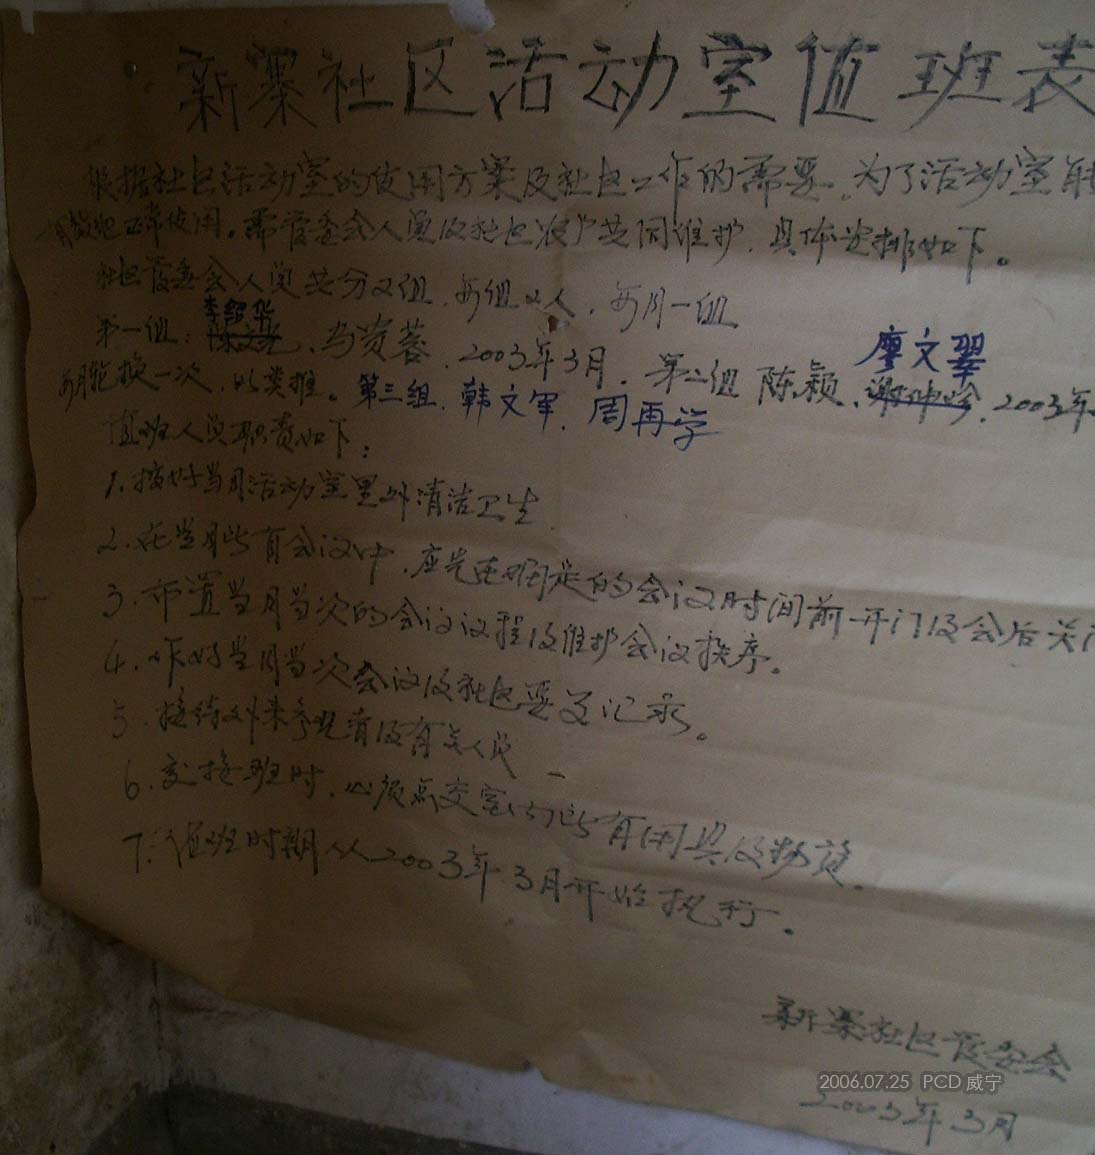 新寨社区活动室值班表
根据社区活动室的使用方案及社区工作的需要,为了活动室能
正常使用。需管委会人员及社区农户共同维护,具体安排如下。
社区管委会人员共分又组,每组2人,每月一组
李绍华
廖文翠
第一组:、马贵蓉,2003年3月,第二组 陈颖、,2003年
每月轮换一次,以类推。第三组,韩文军,周再学
值班人员职责如下:
1.搞好当月活动室里外清洁卫生
2.在当月所有会议中,应先在固定的会议时间前开门及会后关门
3.布置当月当次的会议议程及维护会议秩序。
4.作好当月当次会议及社区要事记录。
5.接待外来参观者及有关人员
6.交接班时,必须点交室内所有用具及物资。
7.值班时期从2003年3月开始执行。
新寨社区管委会
2003年3月
2006.07.25 PCD 威宁